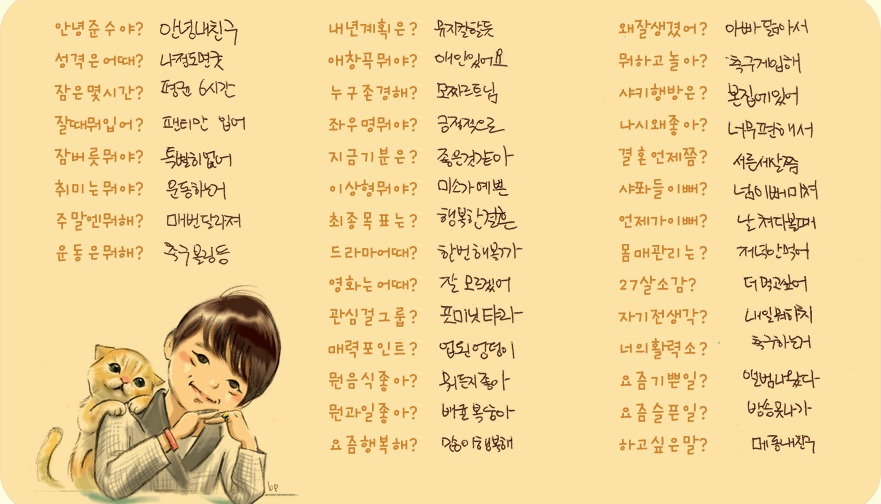 안녕준수야? 안녕내친구
성격은어때? 나정도면굿
잠은몇시간? 평균 6시간
잘때뭐입어? 팬티만 입어
잠버릇뭐야? 특별히없어
취미는뭐야? 운동하는거
주말엔뭐해? 매번달라져
운동은뭐해? 축구볼링등
내년계획은? 뮤지컬할듯
애창곡뭐야? 애인있어요
누구존경해? 모짜르트님
좌우명뭐야? 긍적적으로
지금기분은? 좋은것같아
이상형뭐야? 미소가예쁜
최종목표는? 행복한결혼
드라마어때? 한번해볼가
영화는어때? 잘 모르겠어
관심걸그룹? 포미닛티아라
매력포인트? 업된엉덩이
뭔음식좋아? 뭐든지좋아
뭔과일좋아? 배귤복숭아
요즘행복해? 많이행복해
왜잘생겼어? 아빠닮아서
뭐하고놀아? 축구게임해
샤키행방은? 본집에있어
나시왜좋아? 너무편해서
결혼언제쯤? 서른세살쯤
샤퐈들이뻐? 넘이뻐미쳐
언제가이뻐? 날쳐다볼때
몸매관리는? 저녁안먹어
27살소감? 더먹고싶어
자기전생각? 내일뭐하지
너의활력소? 축구하는거
요즘기쁜일? 앨범나왔다
요즘슬픈일? 방송못나가
하고싶은말? 메롱내친구
bp